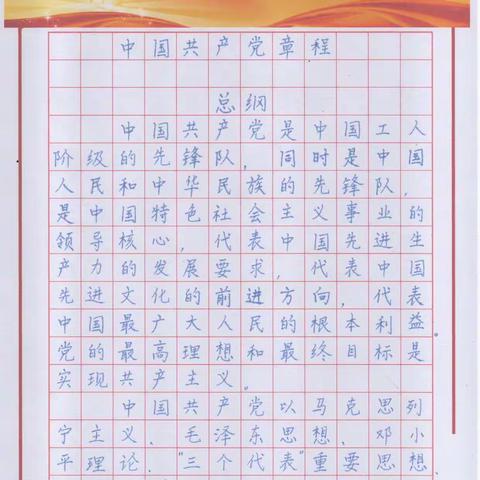 中国共产党章程
总纲
中国共产党是中国工人
阶级的先锋队，同时是中国
人民和中华民族的先锋队，
是中国特色社会主义事业的
领导核心，代表中国先进生
产力的发展要求，代表中国
先进文化的前进方向，代表
中国最广大人民的根本利益。
党的最高理想和最终目标是
实现共产主义。
中国共产党以马克思列
宁主义、毛泽东思想、邓小
平理论、“三个代表”重要思想、